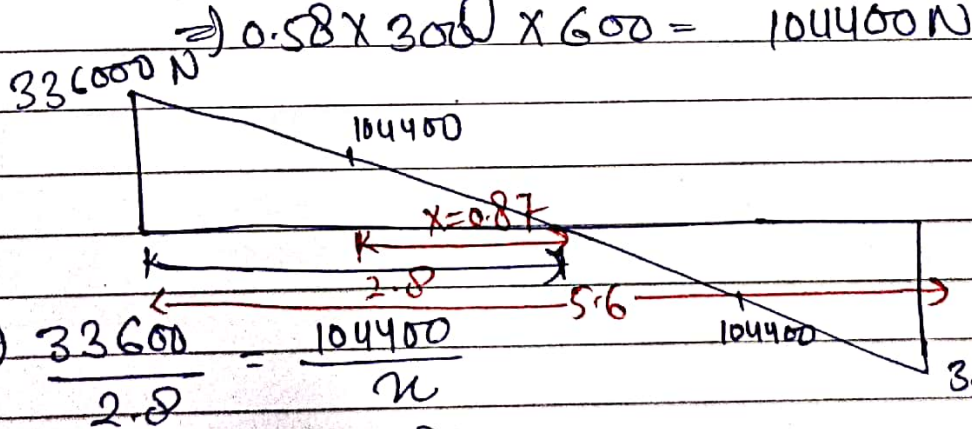 ⇒ 0.58 X 300 X 600 = 104400 N
336000 N
104400
x=0.87
2.8
5.6
104400
33600 / 2.8 = 104400 / x
3